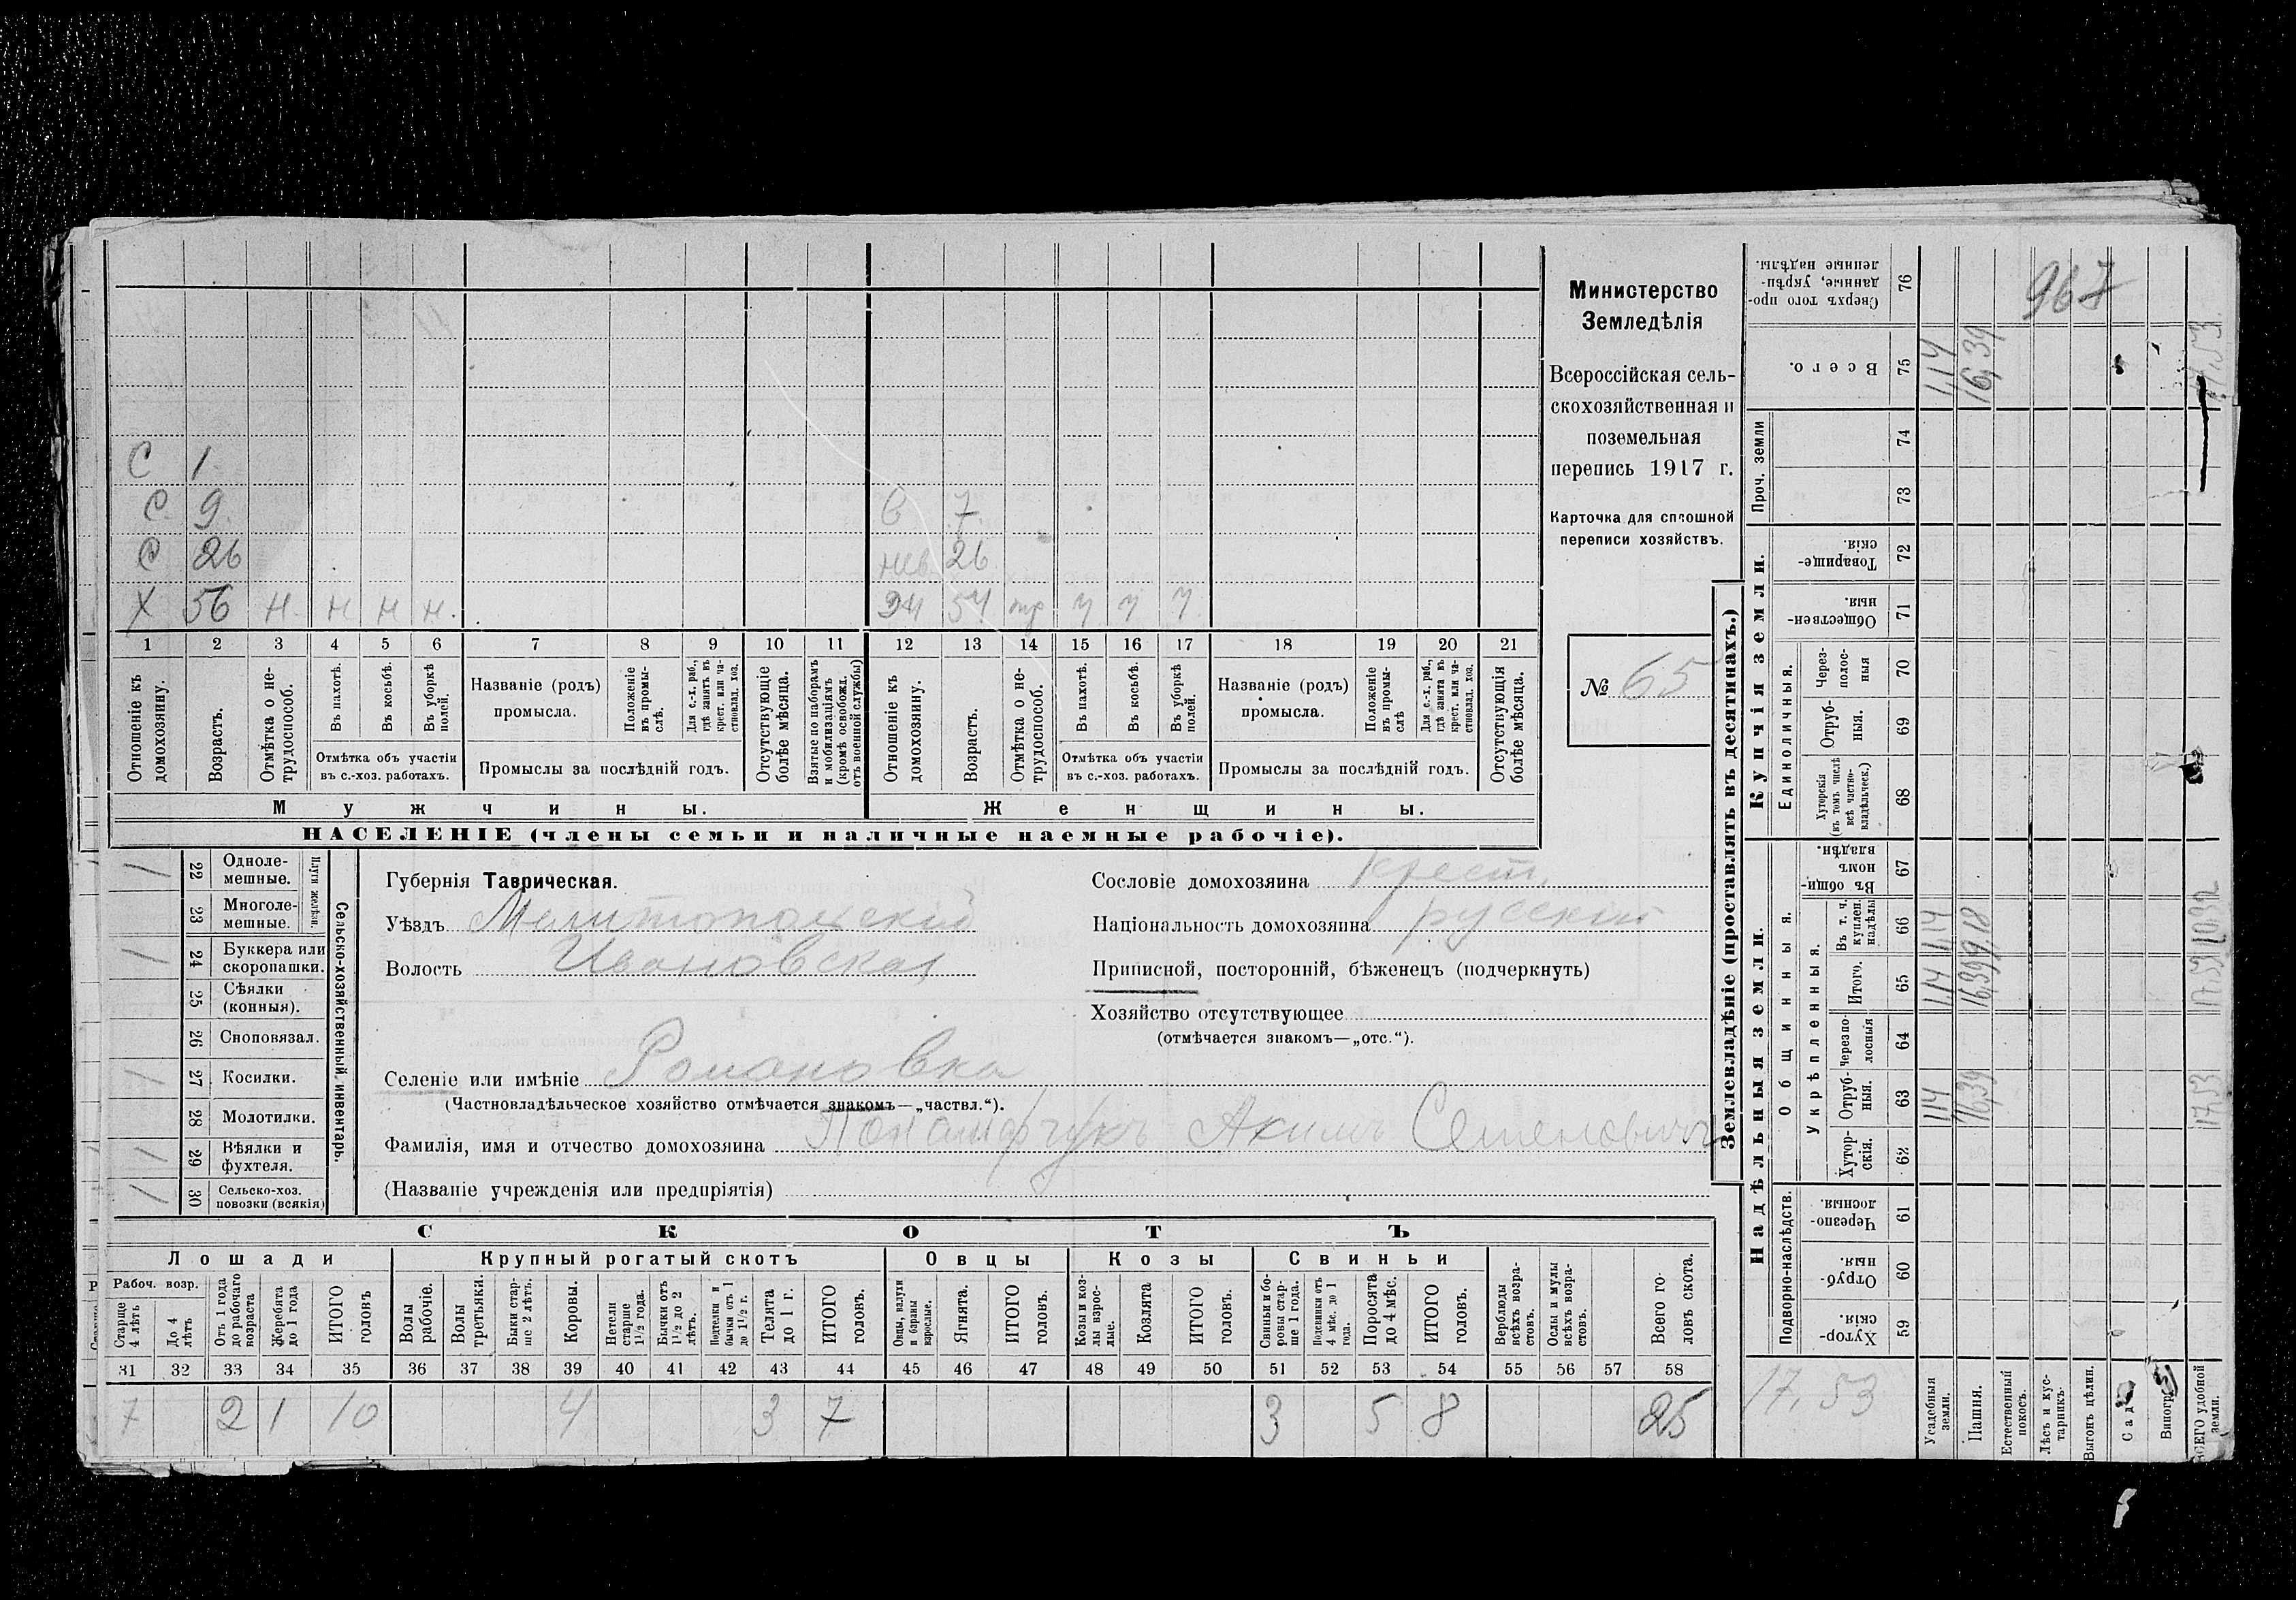 Министерство
Земледѣлія
Всероссійская сель-
скохозяйственная и
поземельная
перепись 1917 г.
Карточка для сплошной
переписи хозяйствъ.
№ 65
С 1
С 9 7
С 26 нев. 26
Х 56 н. н н н.
1 2 3 4 5 6 7 8 9 10 11 12 13 14 15 16 17 18 19 20 21
Отношеніе къ домохозяину.
Возрастъ.
Отмѣтка о не-трудоспособ.
Въ пахотѣ.
Въ косьбѣ.
Въ уборкѣ полей.
Отмѣтка объ участіи
въ с.-хоз. работахъ.
Названіе (родъ)
промысла.
Положеніе въ промы-слѣ.
Для с.-х. раб., гдѣ занятъ въ крест. или ча-стновлад. хоз.
Промыслы за послѣдній годъ.
Отсутствующіе болѣе мѣсяца.
Взятые по наборамъ и мобилизаціямъ (кромѣ освобожд. отъ военной службы)
Отношеніе къ домохозяину.
Возрастъ.
Отмѣтка о не-трудоспособ.
Въ пахотѣ.
Въ косьбѣ.
Въ уборкѣ полей.
Отмѣтка объ участіи
въ с.-хоз. работахъ.
Названіе (родъ)
промысла.
Положеніе въ промы-слѣ
Для с.-х. раб., гдѣ занята въ крест. или ча-стновлад. хоз.
Промыслы за послѣдній годъ.
Отсутствующія болѣе мѣсяца.
Мужчины. Женщины.
НАСЕЛЕНІЕ (члены семьи и наличные наемные рабочіе).
Сельско-хозяйственный инвентарь.
Плуги желѣзн.
1 22 Одноле-мешные.
23 Многоле-мешные.
1 24 Буккера или скоропашки.
25 Сѣялки (конныя).
26 Сноповязал.
1 27 Косилки.
28 Молотилки.
1 29 Вѣялки и фухтеля.
1 30 Сельско-хоз. повозки (всякія)
Губернія Таврическая.
Уѣздъ Мелитопольскій
Волость Ивановская
Селеніе или имѣніе Романовка
(Частновладѣльческое хозяйство отмѣчается знакомъ—„частвл.“).
Фамилія, имя и отчество домохозяина Акимъ Семеновичъ
(Названіе учрежденія или предпріятія)
Сословіе домохозяина крест.
Національность домохозяина русскій
Приписной, посторонній, бѣженецъ (подчеркнуть)
Хозяйство отсутствующее
(отмѣчается знакомъ—„отс.“).
СКОТЪ
Лошади Крупный рогатый скотъ Овцы Козы Свиньи
Рабоч. возр.
Старше 4 лѣтъ
До 4 лѣтъ
Отъ 1 года до рабочаго возраста
Жеребята до 1 года
ИТОГО головъ
Волы рабочіе.
Волы третьяки.
Быки стар-ше 2 лѣтъ.
Коровы.
Нетели старше 1½ года.
Бычки отъ 1½ до 2 лѣтъ.
Подтелки и бычки отъ 1 до 1½ г.
Телята до 1 г.
ИТОГО головъ.
Овцы, валухи и бараны взрослые.
Ягнята.
ИТОГО головъ.
Козы и коз-лы взрос-лые.
Козлята
ИТОГО головъ.
Свиньи и бо-ровы стар-ше 1 года.
Подсвинки отъ 4 мѣс. до 1 года.
Поросята до 4 мѣс.
ИТОГО головъ.
Верблюды всѣхъ возра-стовъ.
Ослы и мулы всѣхъ возра-стовъ.
Всего го-ловъ скота.
31 32 33 34 35 36 37 38 39 40 41 42 43 44 45 46 47 48 49 50 51 52 53 54 55 56 57 58
7 2 1 10 4 3 7 3 5 8 25
Землевладѣніе (проставлять въ десятинахъ.)
967
Сверхъ того про-данные, укрѣп-ленные надѣлы. 76
Всего. 75 1,14 16,39 17,53
Проч. земли 74
73
Купчія земли.
Товарище-скія. 72
Обществен-ныя. 71
Единоличныя.
Через-полос-ныя 70
Отруб-ныя. 69
Хуторскія (въ томъ числѣ всѣ частно-владѣльческ.) 68
Надѣльныя земли.
Общинныя.
Въ общи-номъ владѣн. 67
Укрѣпленныя.
Въ т. ч. куплен. надѣлы 66 1,14 9,18 10,32
Итого. 65 1,14 16,39 17,53
Черезпо-лосныя 64
Отруб-ныя. 63 1,14 16,39 17,53
Хутор-скія. 62
Подворно-наслѣдств.
Черезпо-лосныя 61
Отруб-ныя. 60
Хутор-скія. 59
17,53
Усадебныя земли.
Пашня.
Естественный покосъ.
Лѣсъ и кус-тарникъ.
Выгонъ цѣлин.
Всего удобной земли.